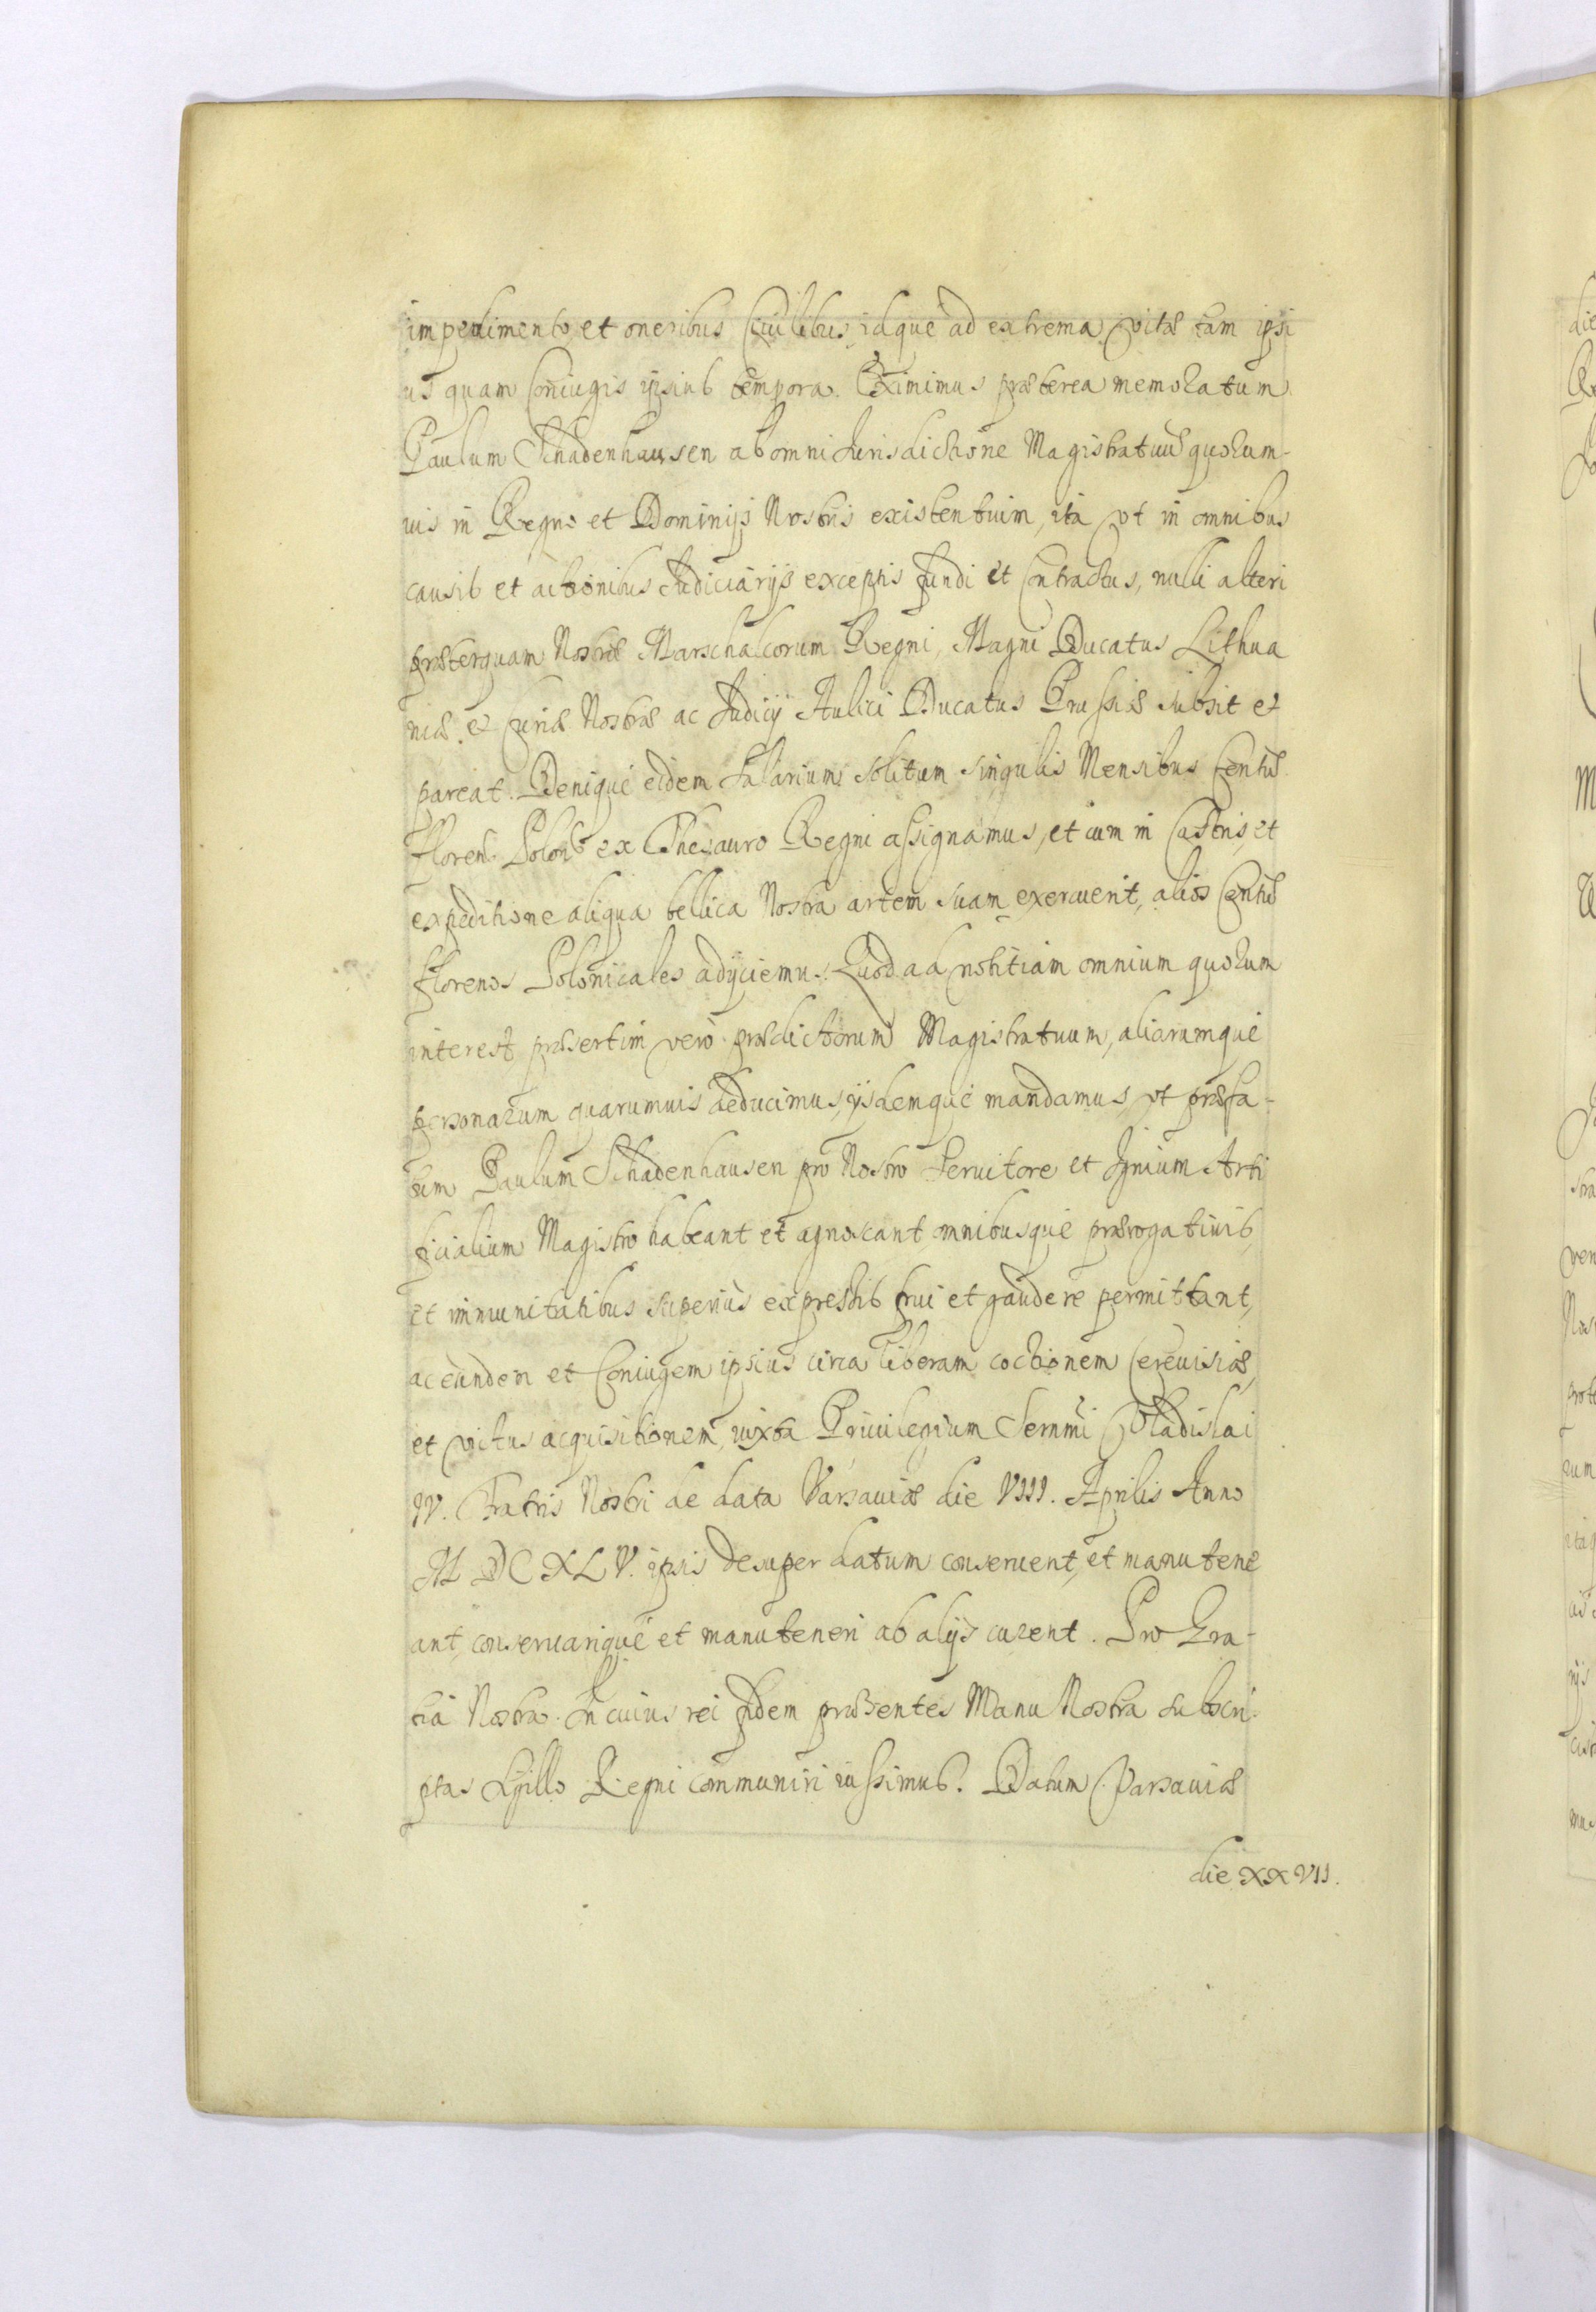 impedimento, et oneribus Ciuilibus, idque ad extrema vitæ tam ipsi
us quam Coniugis ipsius tempora. Eximimus præterea memoratum
Paulum Schadenhausen ab omni Jurisdictione Magistratuũ quorum-
uis in Regno et Dominijs Nostris existentium, ita vt in omnibus
causis et actionibus Judiciarijs exceptis fundi et Contractus, nulli alteri
præterquam Nostræ Marschalcorum Regni, Magni Ducatus Lithua
niæ, et Curiæ Nostræ ac Judicij Aulici Ducatus Prussiæ subsit et
pareat. Denique eidem Salarium solitum singulis Mensibus Centũ
Floren: Polon: ex Thesauro Regni assignamus, et cum in Castris, et
expeditione aliqua bellica Nostra artem suam exercuerit, alios Centũ
florenos Polonicales adijciemus. Quod ad notitiam omnium quorum
interest, præsertim verò prædictorum Magistratuum, aliarumque
personarum quarumuis deducimus, ijsdemque mandamus, vt præfa-
tum Paulum Schadenhausen pro Nostro Seruitore et Ignium Arti
ficialium Magistro habeant et agnoscant, omnibusque prærogatiuis,
et immunitatibus superiùs expressis frui et gaudere permittant,
ac eundem et Coniugem ipsius circa liberam coctionem Cereuisiæ,
et victus acquisitionem, iuxta Priuilegium Serenmi Vladislai
IV. Fratris Nostri de data Varsauiæ die VIII. Aprilis Anno
M DC XLV. ipsis desuper datum conseruent, et manutene
ant, conseruarique et manuteneri ab alijs curent. Pro Gra-
tia Nostra. In cuius rei fidem præsentes Manu Nostra subscri-
ptas Sigillo Regni communiri iussimus. Datum Varsauiæ
die XXVII.